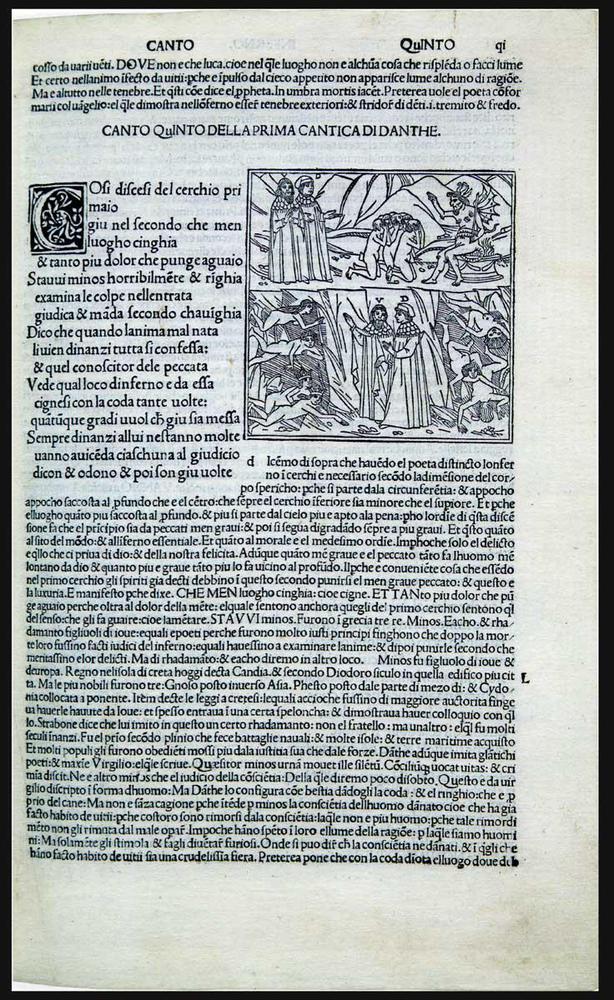 CANTO QuINTO qi
cosso da uarii uẽti. DOVE non e che luca.cioe nel q̃le luogho non e alchũa cosa che risplẽda o facci lume
Et certo nellanimo ĩfecto da uitii:pche e ĩpulso dal cieco appetito non apparisce lume alchuno di ragiõe.
Ma e altutto nelle tenebre.Et q̃sti cõe dice el ꝓpheta.In umbra mortis iacẽt.Preterea uole el poeta cõfor
marsi col uãgelio:el q̃le dimostra nellõferno esser tenebre exteriori:& stridor di dẽti.i.tremito & fredo.
CANTO QuINTO DELLA PRIMA CANTICA DI DANTHE.
COsi discesi del cerchio pri
maio
giu nel secondo che men
luogho cinghia
& tanto piu dolor che punge aguaio
Stauui minos horribilmẽte & righia
examina le colpe nellentrata
giudica & mãda secondo chauighia
Dico che quando lanima mal nata
li uien dinanzi tutta si confessa:
& quel conoscitor dele peccata
Vede qual loco dinferno e da essa
cignesi con la coda tante uolte:
quatũque gradi uuol ch̃ giu sia messa
Sempre dinanzi allui nestanno molte
uanno auicẽda ciaschuna al giudicio
dicon & odono & poi son giu uolte
V D
V D
d Icẽmo di sopra che hauẽdo el poeta distincto lonfer
no i cerchi e necessario secõdo ladimẽsione del cor
po sperico: pche si parte dala circunferẽtia: & appocho
appocho saccosta al ꝓfundo che e el cẽtro:che sẽpre el cerchio iferiore sia minore che el supiore. Et pche
elluogho quãto piu saccosta al ꝓfundo.& piu si parte dal cielo piu e apto ala pena:pho lordie di q̃sta discẽ
sione fa che el pricipio sia da peccati men graui:& poi si segua digradãdo sẽpre a piu graui. Et q̃sto quãto
al sito del mõdo:& alliferno essentiale.Et quãto al morale e el medesimo ordine.Imphoche solo el delicto
e q̃llo che ci priua di dio:& della nostra felicita. Adũque quãto mẽ graue e el peccato tãto fa lhuomo mẽ
lontano da dio & quanto piu e graue tãto piu lo fa uicino al profũdo.Ilpche e conueniẽte cosa che essẽdo
nel primo cerchio gli spiriti gia decti debbino i questo secondo punirsi el men graue peccato: & questo e
la luxuria.E manifesto pche dixe. CHE MEN luogho cinghia: cioe cigne. ET TANto piu dolor che pũ
ge aguaio perche oltra al dolor della mẽte: elquale sentono anchora quegli del primo cerchio sentono q̃l
del senso:che gli fa guaire:cioe lamẽtare. STAVVI minos. Furono i grecia tre re. Minos.Eacho.& rha
damanto figliuoli di ioue:equali epoeti perche furono molto iusti principi finghono che doppo la mor
te loro fussino facti iudici del inferno:equali hauessino a examinare lanime:& dipoi punirle secondo che
meritassino elor delicti. Ma di rhadamãto:& eacho diremo in altro loco. Minos fu figluolo di ioue &
deuropa. Regno nelisola di creta hoggi decta Candia.& secondo Diodoro siculo in quella edifico piu cit
ta. Ma le piu nobili furono tre:Gnoso posto inuerso Asia. Phesto posto dale parte di mezo di: & Cydo
nia collocata a ponente. Itẽm decte le leggi a cretesi:lequali accioche fussino di maggiore auctorita finge
ua hauerle hauute da Ioue: et spesso entraua ĩ una certa speloncha: & dimostraua hauer colloquio con q̃l
lo.Strabone dice che lui imito in questo un certo rhadamanto: non el fratello: ma unaltro: elq̃l fu molti
seculi inanzi.Fu el prio secõdo plinio che fece battaglie nauali:& molte isole:& terre maritime acquisto
Et molti populi gli furono obediẽti mossi piu dala iustitia sua che dale forze. Dãthe adũque imita glãtichi
poeti:& maxie Virgilio:elq̃le scriue. Quæsitor minos urnã mouet ille silẽtũ. Cõciliũq; uocat uitas: & cri
mia discit.Ne e altro minos che el iudicio della cõsciẽtia:Della q̃le diremo poco disobto. Questo e da uir
gilio discripto ĩ forma dhuomo: Ma Dãthe lo configura cõe bestia dãdogli la coda: & el ringhio:che e ꝓ
prio del cane: Ma non e sãza cagione pche itẽde p minos la consciẽtia dellhuomo dãnato cioe che ha gia
facto habito de uitii:pche costoro sono rimorsi dala consciẽtia:laq̃le non e piu huomo:pche tale rimordi
mẽto non gli rimuta dal male opar. Impoche hãno spẽto i loro ellume della ragiõe: p laq̃le siamo huomi
ni: Ma solamẽte gli stimola & fagli diuẽtar furiosi. Onde si puo dir ch̃ la consciẽtia ne dãnati.& i q̃gli che
hãno facto habito de uitii sia una crudelissia fiera. Preterea pone che con la coda diota elluogo doue di
L